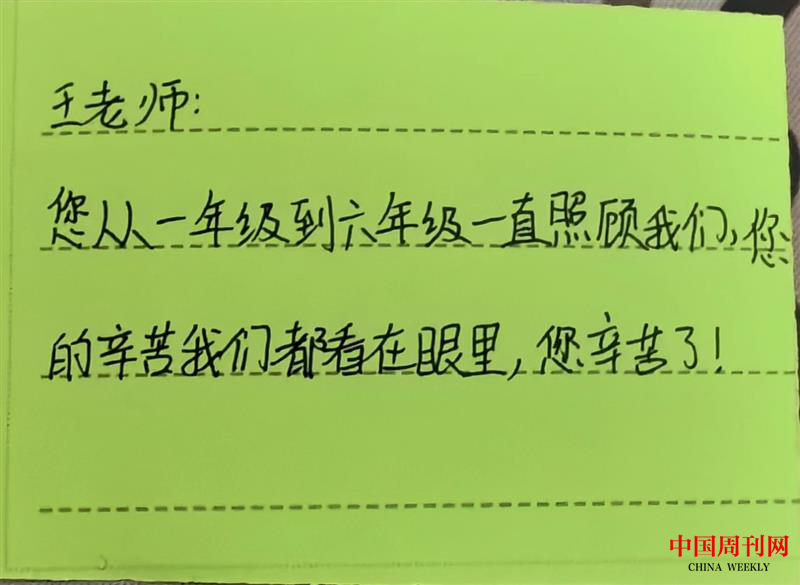 王老师:
您从一年级到六年级一直照顾我们,您
的辛苦我们都看在眼里,您辛苦了!
中国周刊网
CHINA WEEKLY